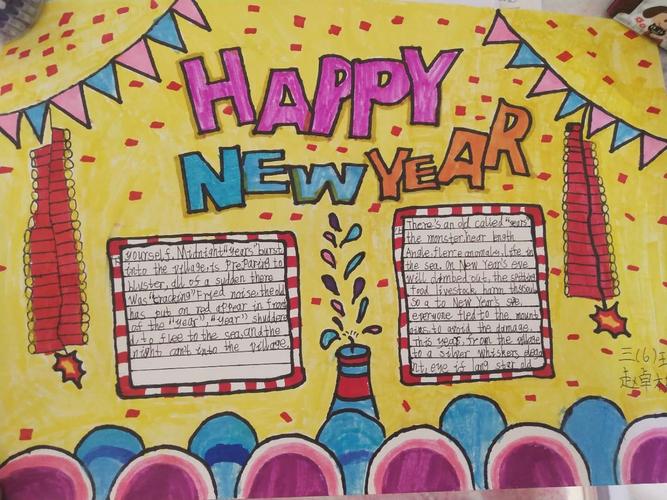 HAPPY
NEW YEAR
yourself. Midnight, "years" burst
into the village. is Preparing to
bluster, all of a sudden there
was "cracking" fryed noise. the old
has put on red appear in front
of the "year", "year" shuddere
d. to flee to the sea. and the
night can't into the village.
There's an old called "years"
the monster. hear length
Angle. fierce anomaly. life in
the sea. On New Year's eve
will admire out, the eating
food livestock harm
So a to New Year's eve,
everyone fled to the mount
ains to avoid the damage.
This year, from the village
to a silver whiskers elega
nt, eye if lang star old
三(6)
赵卓